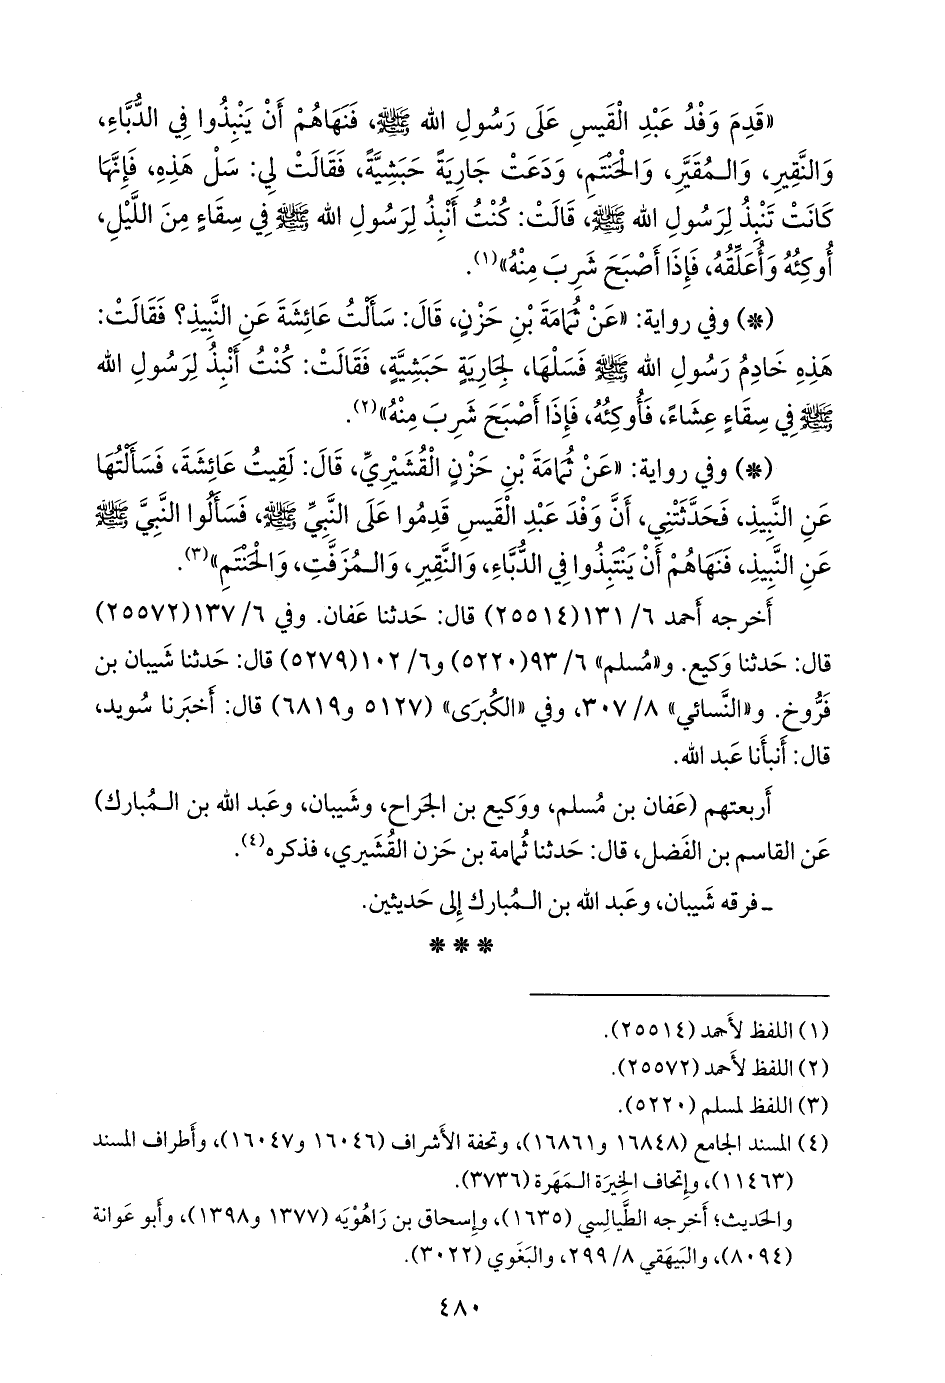 «قَدِمَ وَفْدُ عَبْدِ الْقَيسِ عَلَى رَسُولِ الله ﷺ، فَنَهَاهُمْ أَنْ يَنْبِذُوا فِي الدُّبَّاءِ،
وَالنَّقِيرِ، وَالـمُقَيَّرِ، وَالْحَنْتَمِ، وَدَعَتْ جَارِيَةً حَبَشِيَّةً، فَقَالَتْ لِي: سَلْ هَذِهِ، فَإِنَّهَا
كَانَتْ تَنْبِذُ لِرَسُولِ الله ﷺ، قَالَتْ: كُنْتُ أَنْبِذُ لِرَسُولِ الله ﷺ فِي سِقَاءٍ مِنَ اللَّيْلِ،
أُوكِئُهُ وَأُعَلِّقُهُ، فَإِذَا أَصْبَحَ شَرِبَ مِنْهُ»(١).
(*) وفي رواية: «عَنْ ثُمَامَةَ بْنِ حَزْنٍ، قَالَ: سَأَلْتُ عَائِشَةَ عَنِ النَّبِيذِ؟ فَقَالَتْ:
هَذِهِ خَادِمُ رَسُولِ الله ﷺ فَسَلْهَا، لِجَارِيَةٍ حَبَشِيَّةٍ، فَقَالَتْ: كُنْتُ أَنْبِذُ لِرَسُولِ الله
ﷺ فِي سِقَاءٍ عِشَاءً، فَأُوكِئُهُ، فَإِذَا أَصْبَحَ شَرِبَ مِنْهُ»(٢).
(*) وفي رواية: «عَنْ ثُمَامَةَ بْنِ حَزْنٍ الْقُشَيْرِيِّ، قَالَ: لَقِيتُ عَائِشَةَ، فَسَأَلْتُهَا
عَنِ النَّبِيذِ، فَحَدَّثَتْنِي، أَنَّ وَفْدَ عَبْدِ الْقَيسِ قَدِمُوا عَلَى النَّبِيِّ ﷺ، فَسَأَلُوا النَّبِيَّ ﷺ
عَنِ النَّبِيذِ، فَنَهَاهُمْ أَنْ يَنْتَبِذُوا فِي الدُّبَّاءِ، وَالنَّقِيرِ، وَالـمُزَفَّتِ، وَالْحَنْتَمِ»(٣).
أَخرجه أَحمد ٦/ ١٣١(٢٥٥١٤) قال: حَدثنا عَفان. وفي ٦/ ١٣٧(٢٥٥٧٢)
قال: حَدثنا وَكيع. و«مُسلم» ٦/ ٩٣(٥٢٢٠) و٦/ ١٠٢(٥٢٧٩) قال: حَدثنا شَيبان بن
فَرُّوخ. و«النَّسائي» ٨/ ٣٠٧، وفي «الكُبرَى» (٥١٢٧ و٦٨١٩) قال: أَخبَرنا سُويد،
قال: أَنبأَنا عَبد الله.
أَربعتهم (عَفان بن مُسلم، ووَكيع بن الجَراح، وشَيبان، وعَبد الله بن الـمُبارك)
عَن القاسم بن الفَضل، قال: حَدثنا ثُمامة بن حَزن القُشَيري، فذكره(٤).
ـ فرقه شَيبان، وعَبد الله بن الـمُبارك إلى حَديثين.
* * *
(١) اللفظ لأَحمد (٢٥٥١٤).
(٢) اللفظ لأَحمد (٢٥٥٧٢).
(٣) اللفظ لمسلم (٥٢٢٠).
(٤) المسند الجامع (١٦٨٤٨ و١٦٨٦١)، وتحفة الأَشراف (١٦٠٤٦ و١٦٠٤٧)، وأَطراف المسند
(١١٤٦٣)، وإتحاف الخِيرَة الـمَهَرة (٣٧٣٦).
والحَديث؛ أَخرجه الطَّيالِسي (١٦٣٥)، وإسحاق بن رَاهُوْيَه (١٣٧٧ و١٣٩٨)، وأَبو عَوانة
(٨٠٩٤)، والبَيهَقي ٨/ ٢٩٩، والبَغَوي (٣٠٢٢).
٤٨٠